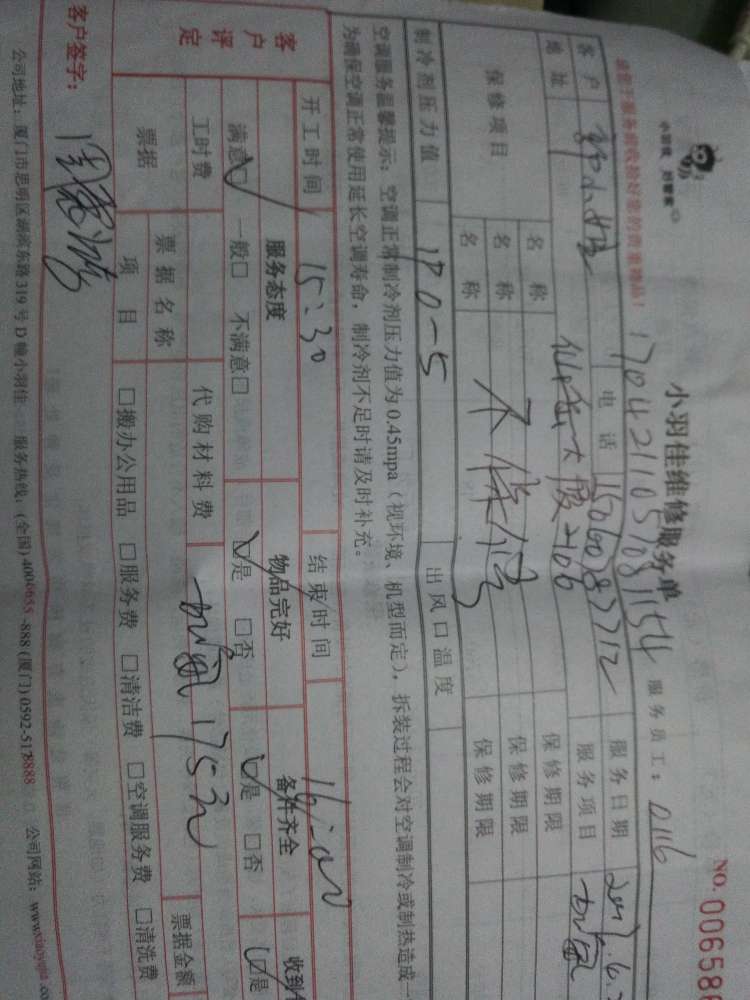 小羽佳 好管家
请您于服务前收拾好您的贵重物品！
NO. 006588
小羽佳维修服务单
17042110510811154
服务员工：0116
客户 电话 服务日期 2017.6.
地址 2106 服务项目 加氟
保修项目 名称 保修期限
名称 不保修 保修期限
名称 保修期限
制冷剂压力值 170-5 出风口温度
空调服务温馨提示：空调正常制冷剂压力值为0.45mpa（视环境、机型而定），拆装过程会对空调制冷或制热造成一
为确保空调正常使用延长空调寿命，制冷剂不足时请及时补充。
开工时间 15:30 结束时间 16:00
客户评定 服务态度 物品完好 备件齐全 收到
满意☑ 一般□ 不满意□ ☑是 □否 ☑是 □否 ☑是
工时费 代购材料费 加氟175元
票据 票据名称 票据金额
项目 □搬办公用品 □服务费 □清洁费 □空调服务费 □清洗费
客户签字：
公司地址：厦门市思明区湖滨东路319号D幢小羽佳 服务热线：(全国) 4000655-888 (厦门) 0592-5178888 公司网站：